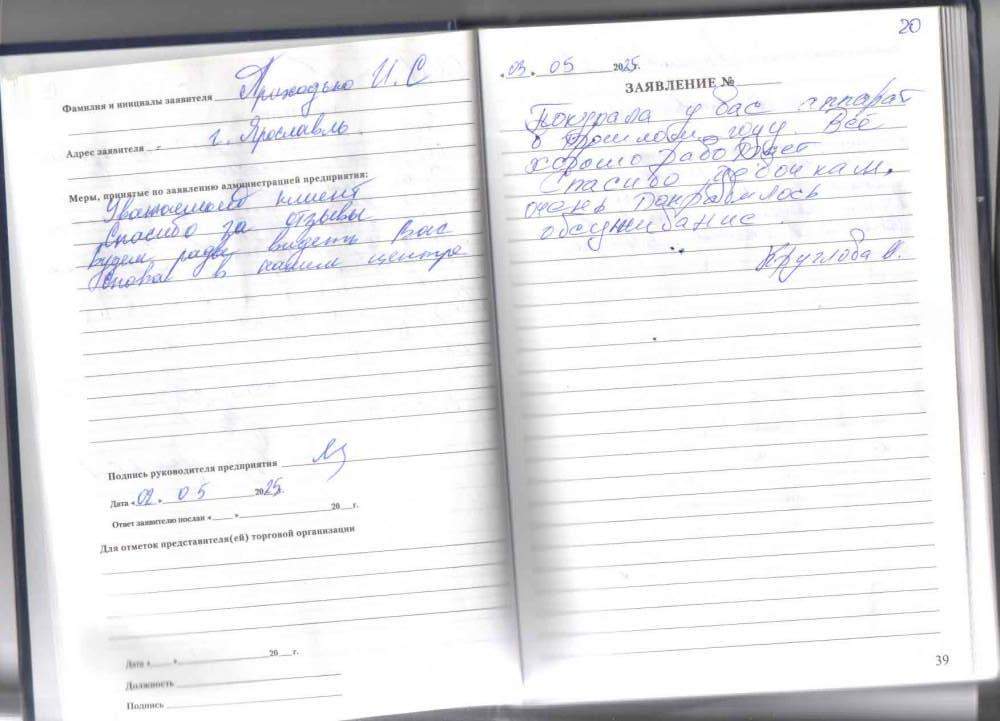 Фамилия и инициалы заявителя Приходько И. С
Адрес заявителя г. Ярославль.
Меры, принятые по заявлению администрацией предприятия:
Уважаемый клиент
Спасибо за отзывы
Будем рады видеть Вас
снова в нашем центре
Подпись руководителя предприятия
Дата «02» 05 2025г.
Ответ заявителю послан «___» 20__г.
Для отметок представителя(ей) торговой организации
Дата «___» 20__г.
Должность
Подпись
20
«03» 05 2025г.
ЗАЯВЛЕНИЕ №
Покупала у вас аппарат
в прошлом году. Всё
хорошо работает
Спасибо девочкам,
очень понравилось
обслуживание
Круглова
39